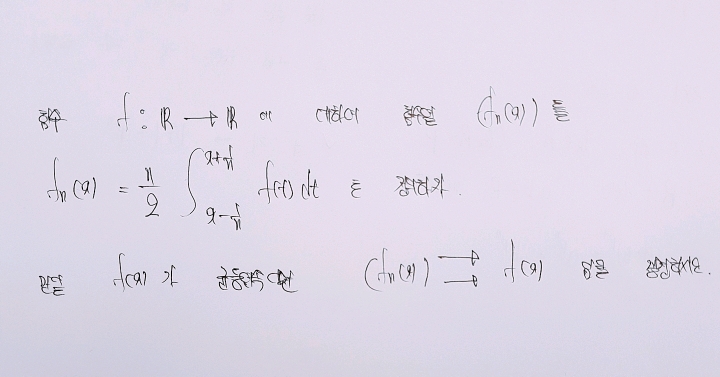 함수 f : ℝ → ℝ 에 대하여 함수열 (fₙ(x)) 를
fₙ(x) = n/2 ∫_{x-1/n}^{x+1/n} f(t) dt 로 정의하자.
만일 f(x) 가 균등연속이면 (fₙ(x)) ⇉ f(x) 임을 증명하시오.